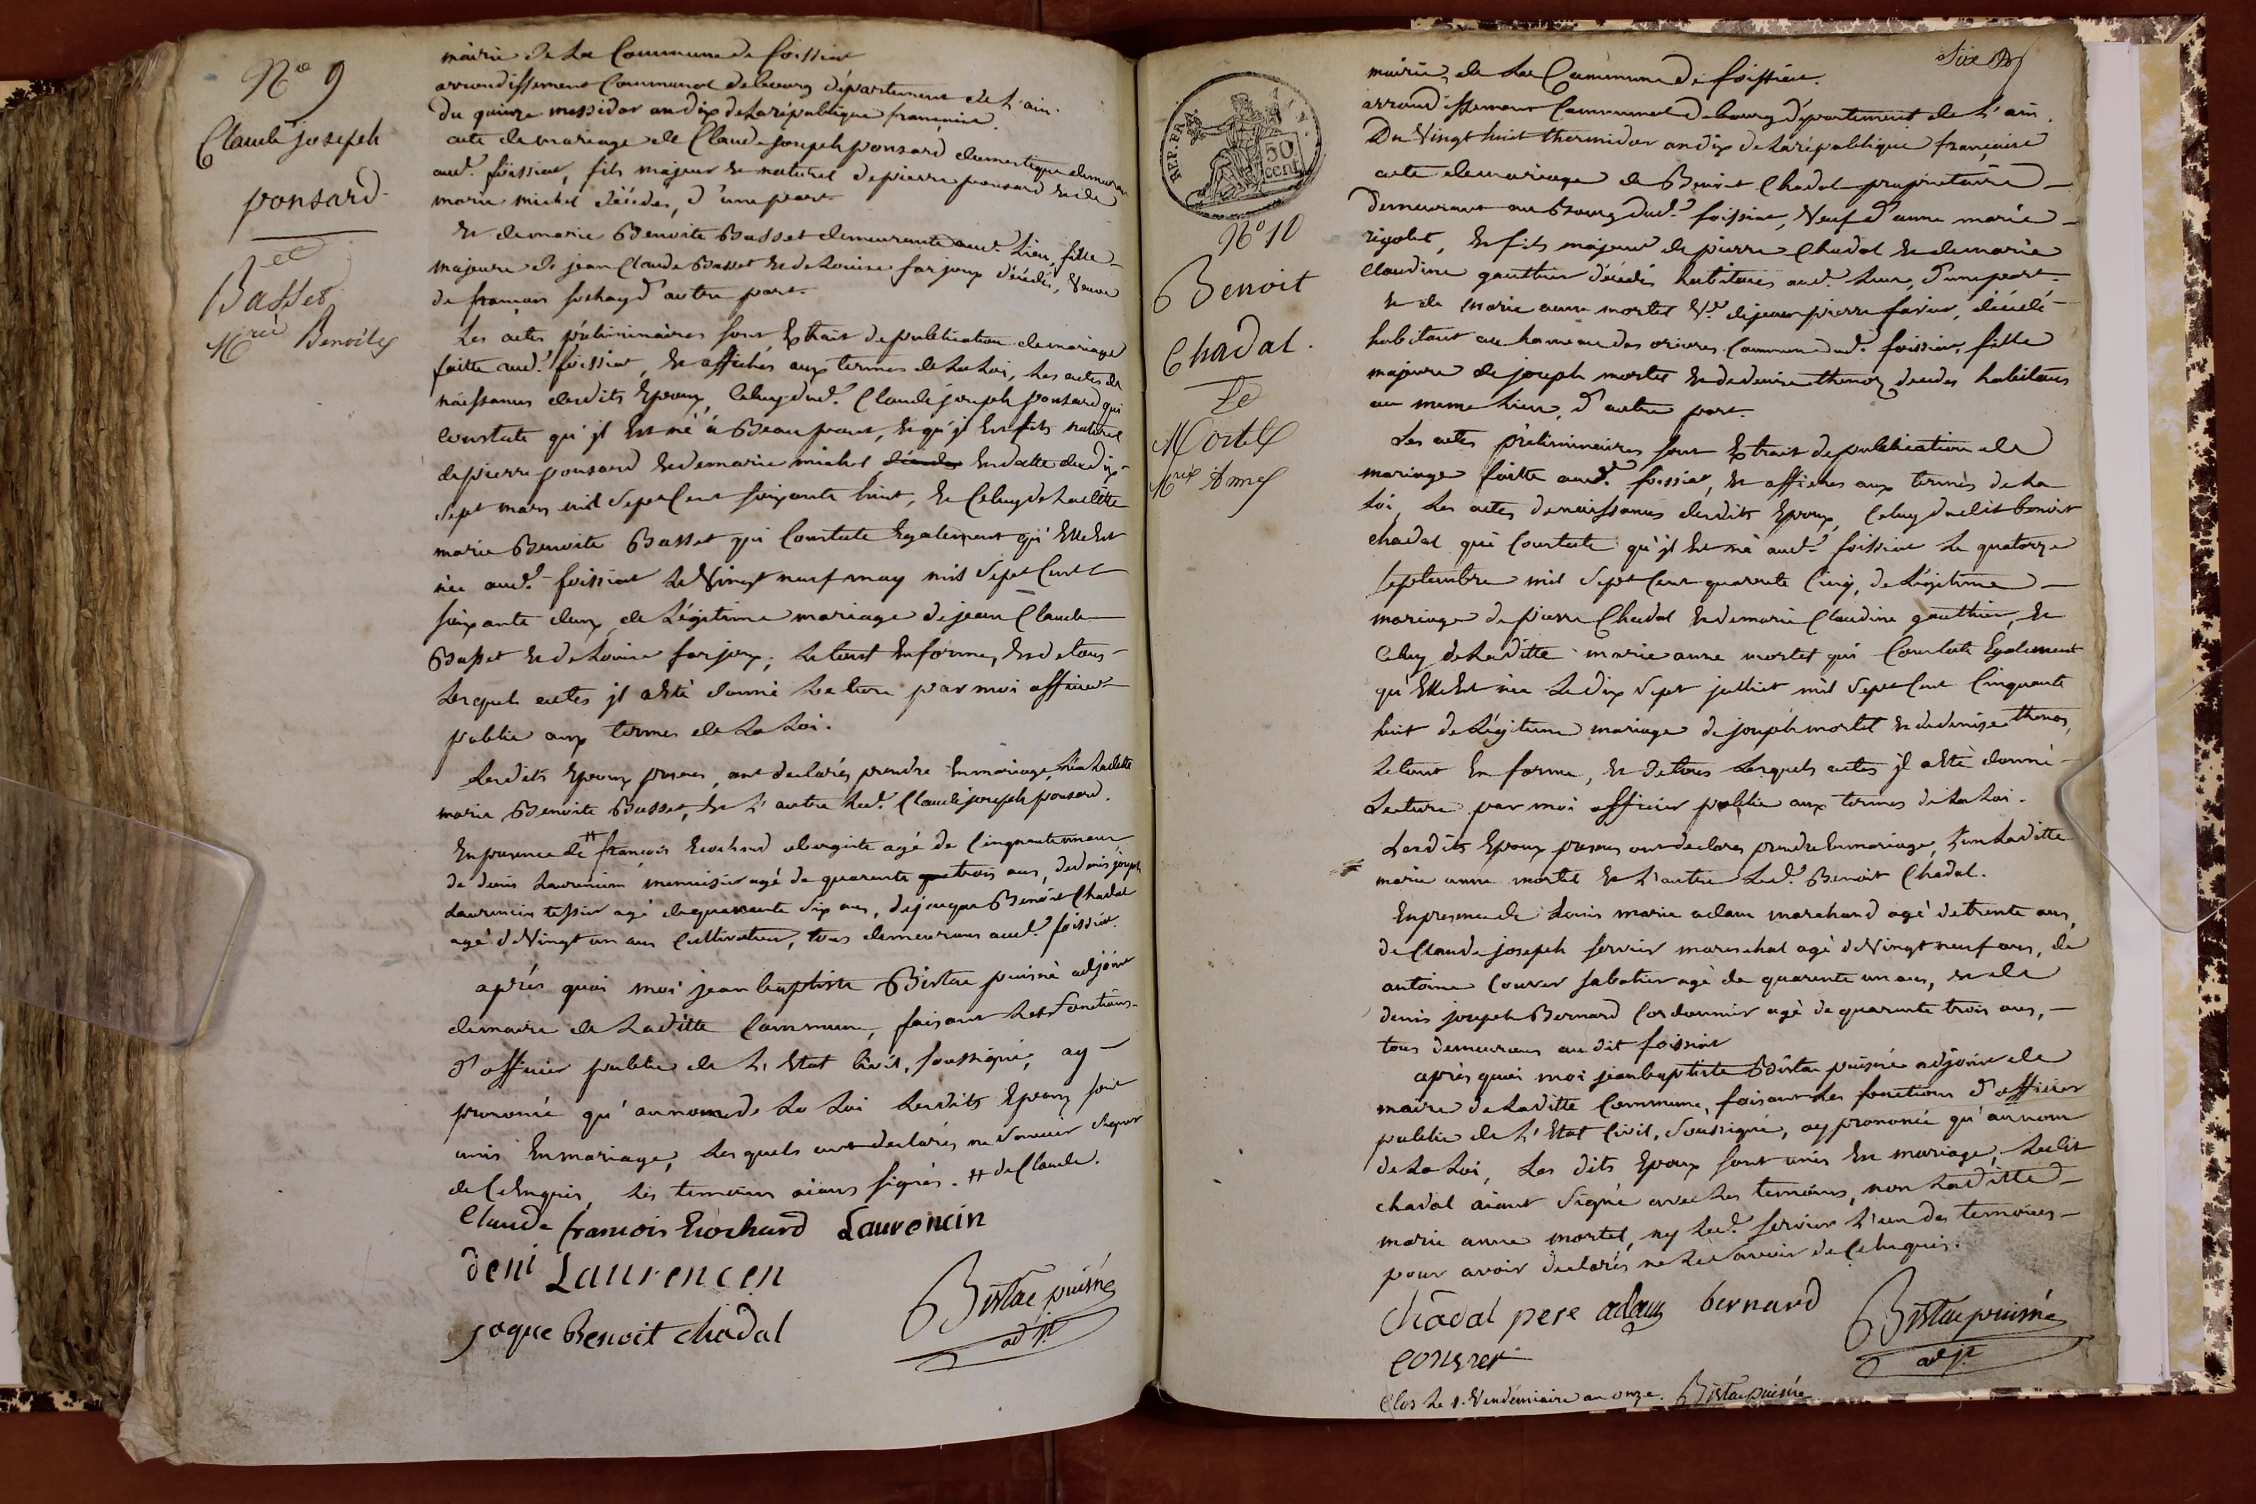 N.º 9
Claude joseph
ponsard
et
Basset
M.rie Benoite
mairie de La Commune de foissiat
arrondissement Communal de bourg département de L'ain.
Du quinze messidor an dix de la république française.
acte de mariage de Claude joseph ponsard domestique demeurant
aud.t foissiat, fils majeur et naturel de pierre ponsard et de
marie michel décédés, d'une part.
Et de marie Benoite Basset demeurante aud.t Lieu, fille
majeure de jean Claude Basset et de Louise farjoux décédés, Veuve
de françois sochay d'autre part.
Les actes préliminaires sont Extrait de publication de mariage
faitte aud.t foissiat, et affichés aux termes de la Loi, Les actes de
naissances desdits Epoux, Celuy dud.t Claude joseph ponsard qui
constate qu'jl Est né à Beaupont, et qu'jl Est fils naturel
de pierre ponsard et de marie michel En datte du dix
Sept mars mil Sept Cent soixante huit, et Celuy de Laditte
marie Benoite Basset qui Constate Egalement qu'Elle Est
née aud.t foissiat Le Vingt neuf may mil Sept Cent
soixante deux, de Légitime mariage de jean Claude
Basset et de Louise farjoux; Le tout En forme, Et de tous
Lesquels actes jl a Eté donné Lecture par moi officier
public aux termes de La Loi.
Lesdits Epoux présens, ont déclarés prendre En mariage, L'un Laditte
marie Benoite Basset, et L'autre Led.t Claude joseph ponsard.
En présence de # françois Erochard aubergiste agé de Cinquante un ans,
de denis Laurencin menuisier agé de quarante trois ans, de denis joseph
Laurencin tessier agé de quarante Six ans, de jacque Benoit Chadal
agé de Vingt un ans Cultivateur, tous demeurans aud.t foissiat.
après quoi moi jean baptiste Bistac puisné adjoint
de maire de Laditte Commune, faisant Les fonctions
d'officier public de L'Etat Civil, soussigné, ay
prononcé qu'au nom de La Loi Lesdits Epoux sont
unis En mariage, Lesquels ont déclarés ne Scavoir Signer
de Ce Enquis, Les temoins aians signés. # de Claude.
Claude francois Erochard Laurencin
deni Laurencen
jaque Benoit chadal
Bistac puisné
adjt
Six
REP. FRA.
50
cent.
N.º 10
Benoit
Chadal.
Et
Mortel
M.rie Anne
mairie de La Commune de foissiat.
arrondissement Communal de bourg département de L'ain.
Du Vingt huit thermidor an dix de la république française
acte de mariage de Benoit Chadal propriétaire
demeurant au Bourg dud.t foissiat, Veuf d'anne marie
rigolet, Et fils majeur de pierre Chadal et de marie
Claudine gauthier décédés habitans aud.t Lieu, d'une part.
et de marie anne mortel V.e de jean pierre favier, décédé
habitant au hameau des orieres Commune dud.t foissiat, fille
majeure de joseph mortel et de denise thenoz décédés habitans
au meme Lieu, d'autre part.
Les actes préliminaires sont Extrait de publication de
mariage faitte aud.t foissiat, et affichés aux termes de La
Loi, Les actes de naissances desdits Epoux, Celuy dudit benoit
chadal qui Constate qu'jl Est né aud.t foissiat Le quatorze
septembre mil Sept Cent quarante Cinq, de Légitime
mariage de pierre Chadal et de marie Claudine gauthier, et
Celuy de Laditte marie anne mortel qui Constate Egalement
qu'Elle Est née Le dix Sept juillet mil Sept Cent Cinquante
huit de Légitime mariage de joseph mortel et de denise thenoz,
Le tout En forme, et De tous Lesquels actes jl a Eté donné
Lecture par moi officier public aux termes de La Loi.
Lesdits Epoux présens ont déclarés prendre En mariage, L'un Laditte
marie anne mortel et L'autre Led.t Benoit Chadal.
En présence de Louis marie adam marchand agé de trente ans,
de Claude joseph servier mareschal agé de Vingt neuf ans, de
antoine Couvet sabotier agé de quarente un ans, et de
denis joseph Bernard Cordonnier agé de quarente trois ans,
tous demeurans audit foissiat
après quoi moi jean baptiste Bistac puisné adjoint de
maire de Laditte Commune, faisant Les fonctions d'officier
public de L'Etat Civil, Soussigné, ay prononcé qu'au nom
de La Loi, Les dits Epoux sont unis En mariage, Ledit
chadal aiant Signé avec Les temoins, non Laditte
marie anne mortel, ny Led.t servier L'un des temoins
pour avoir déclarés ne Le Scavoir de Ce Enquis.
chadal pere adam bernard
Bistac puisné
adjt
Clos Le 1. Vendemiaire an onze. Bistac puisné